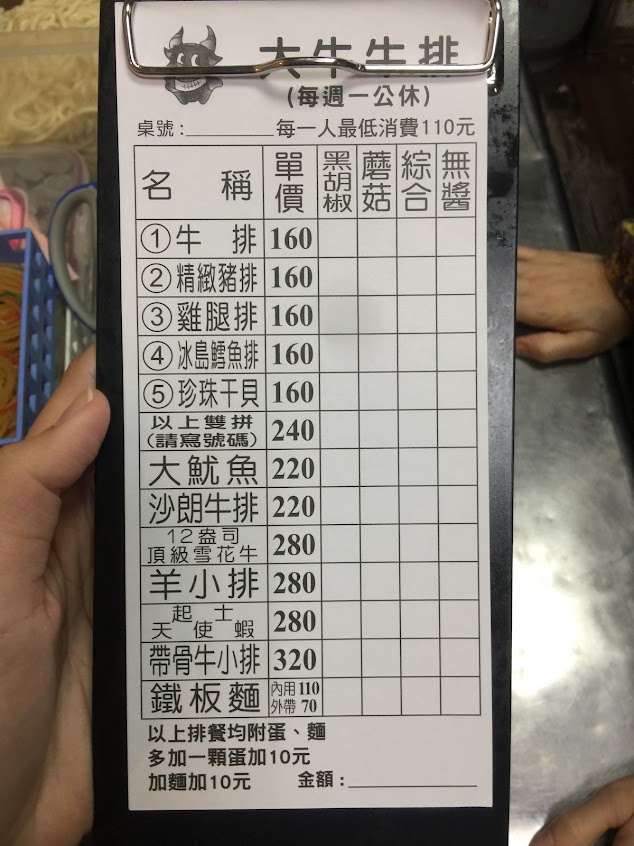 大牛牛排
(每週一公休)
桌號：________ 每一人最低消費110元
名稱 單價 黑胡椒 蘑菇 綜合 無醬
①牛排 160
②精緻豬排 160
③雞腿排 160
④冰島鱈魚排 160
⑤珍珠干貝 160
以上雙拼
(請寫號碼) 240
大魷魚 220
沙朗牛排 220
12盎司
頂級雪花牛 280
羊小排 280
起士
天使蝦 280
帶骨牛小排 320
鐵板麵 內用 110
外帶 70
以上排餐均附蛋、麵
多加一顆蛋加10元
加麵加10元 金額：____________